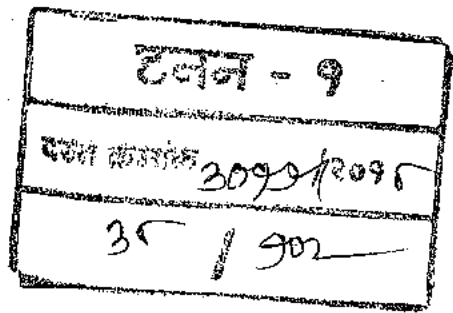 टलन - १
दस्त क्रमांक ३०११/२०१८
३८ / १०२